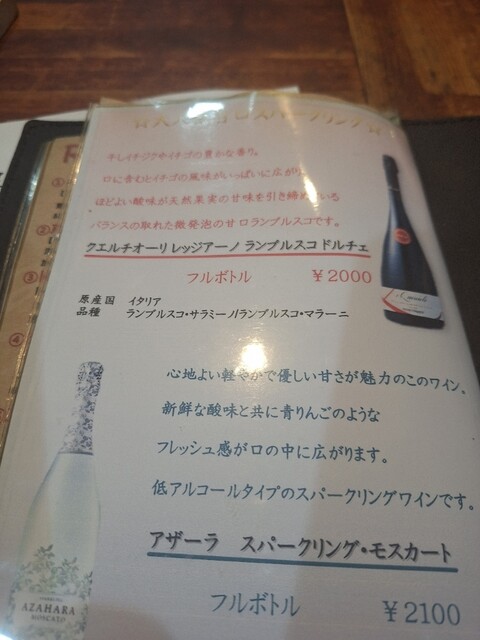 スパークリング☆
干しイチジクやイチゴの豊かな香り。
口に含むとイチゴの風味がいっぱいに広がり
ほどよい酸味が天然果実の甘味を引き締めている
バランスの取れた微発泡の甘口ランブルスコです。
クエルチオーリ レッジアーノ ランブルスコ ドルチェ
フルボトル ￥2000
原産国 イタリア
品種 ランブルスコ・サラミーノ/ランブルスコ・マラーニ
心地よい軽やかで優しい甘さが魅力のこのワイン、
新鮮な酸味と共に青りんごのような
フレッシュ感が口の中に広がります。
低アルコールタイプのスパークリングワインです。
アザーラ スパークリング・モスカート
フルボトル ￥2100
AZAHARA
MOSCATO